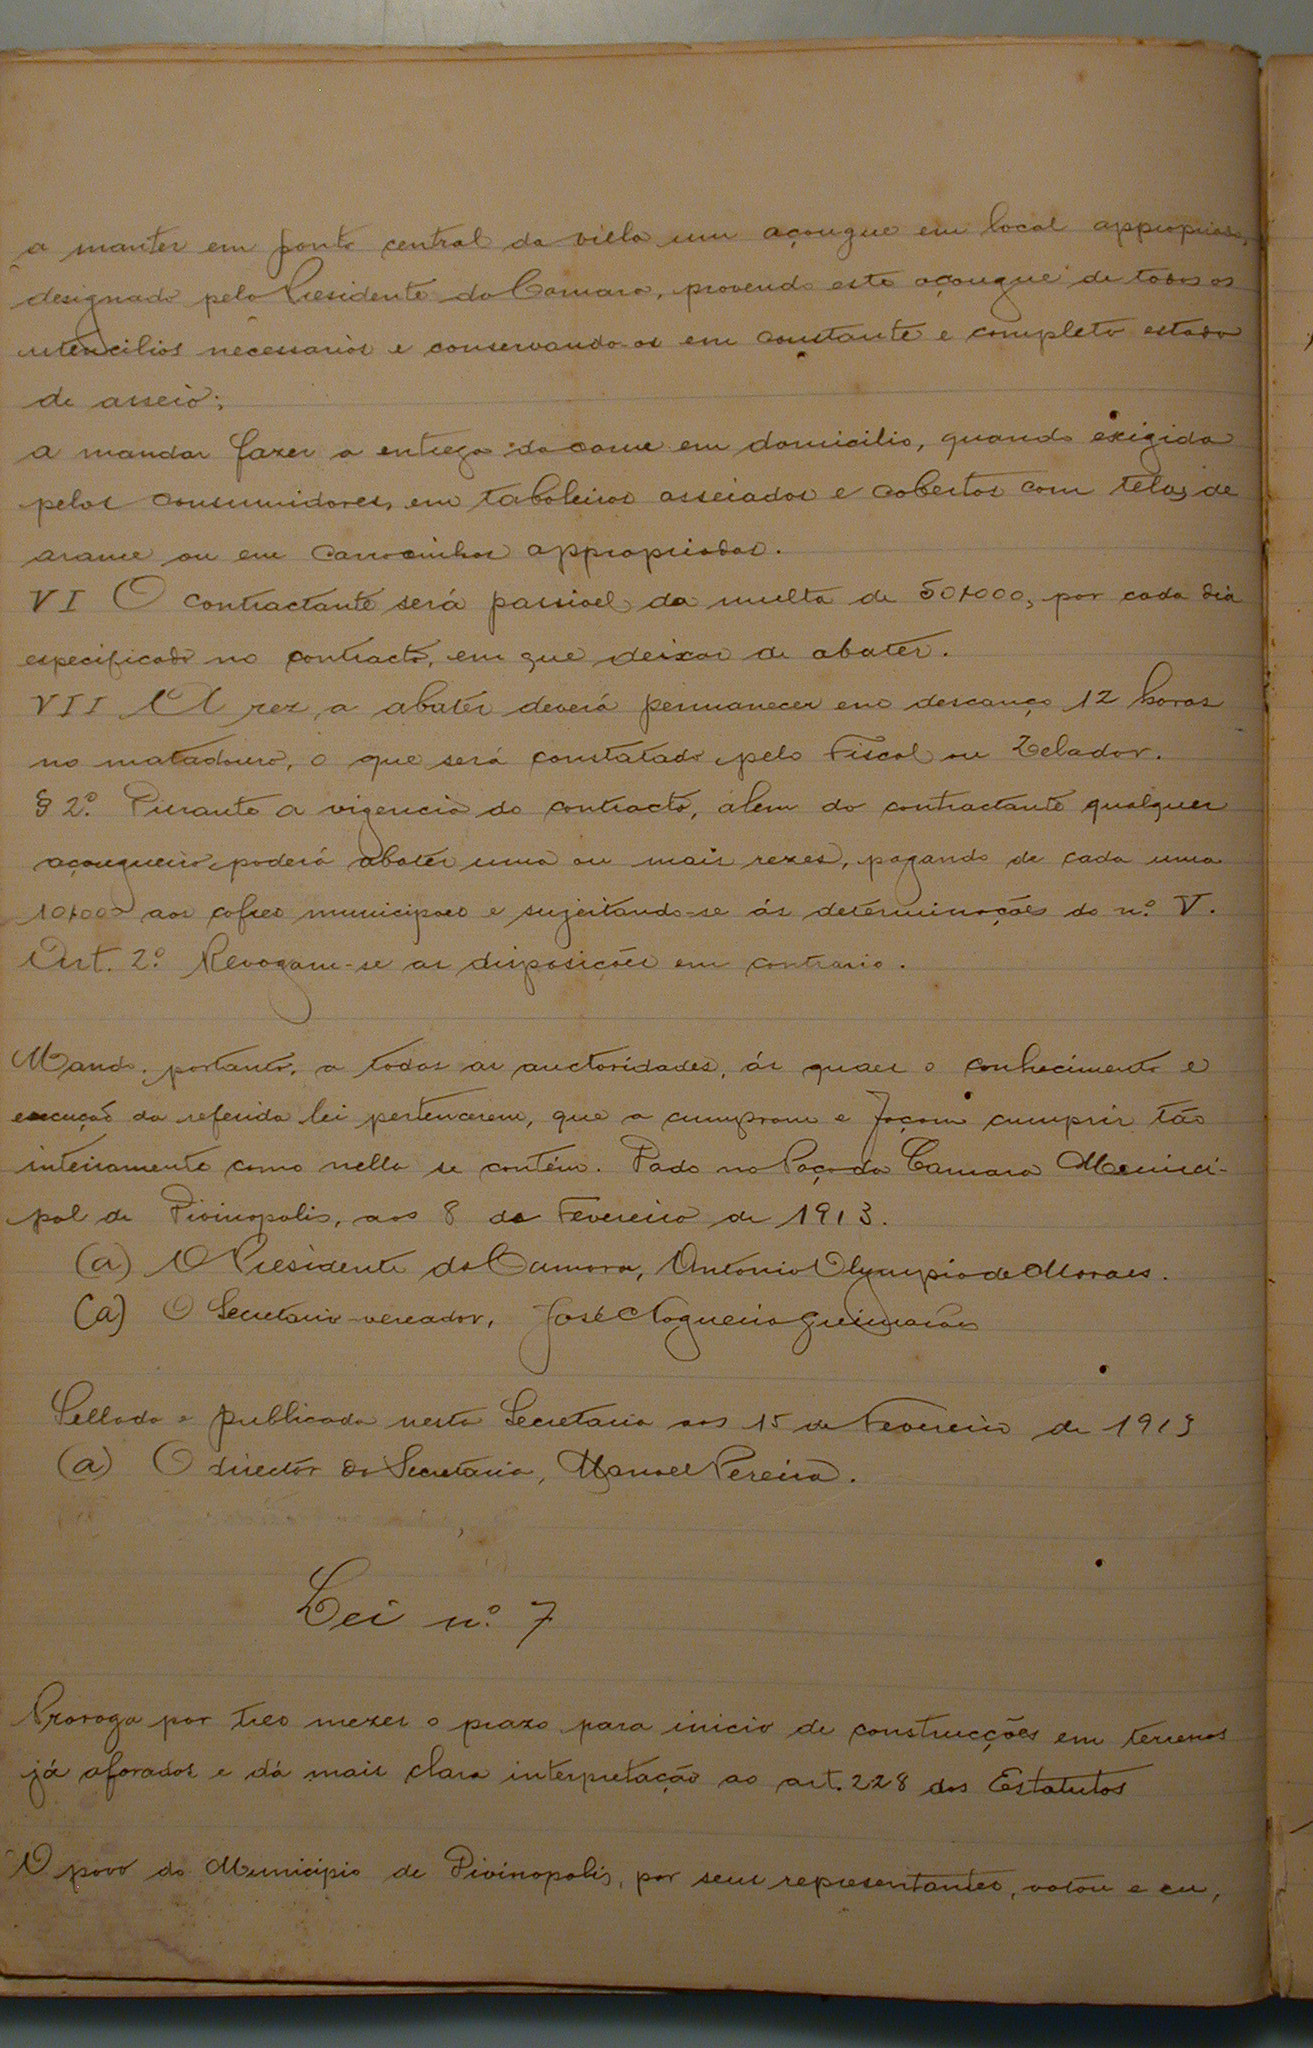 a manter em ponto central da villa um açougue em local appropriado,
designado pelo Presidente da Camara, provendo este açougue de todos os
utencilios necessarios e conservando-os em constante e completo estado
de asseio;
a mandar fazer a entrega da carne em domicilio, quando exigida
pelos consumidores, em taboleiros asseiados e cobertos com telas de
arame ou em carrocinhas appropriadas.
VI O contractante será passivel da multa de 50$000, por cada dia
especificado no contracto, em que deixar de abater.
VII A rez a abater deverá permanecer em descanço 12 horas
no matadouro, o que será constatado pelo Fiscal ou Zelador.
§ 2.º Durante a vigencia do contracto, alem do contractante qualquer
açougueiro poderá abater uma ou mais rezes, pagando de cada uma
10$000 aos cofres municipaes e sujeitando-se ás determinações do n.º V.
Art. 2.º Revogam-se as disposições em contrario.
Mando, portanto, a todas as auctoridades, ás quaes o conhecimento e
execução da referida lei pertencerem, que a cumpram e façam cumprir tão
inteiramente como nella se contém. Dado no Paço da Camara Munici-
pal de Divinopolis, aos 8 de Fevereiro de 1913.
(a) O Presidente da Camara, Antonio Olympio de Moraes.
(a) O Secretario-vereador, José Nogueira Guimarães
Sellada e publicada nesta Secretaria aos 15 de Fevereiro de 1913
(a) O director da Secretaria, Manoel Pereira.
Lei n.º 7
Proroga por tres mezes o prazo para inicio de construcções em terrenos
já aforados e dá mais clara interpretação ao art. 228 dos Estatutos
O povo do Municipio de Divinopolis, por seus representantes, votou e eu,